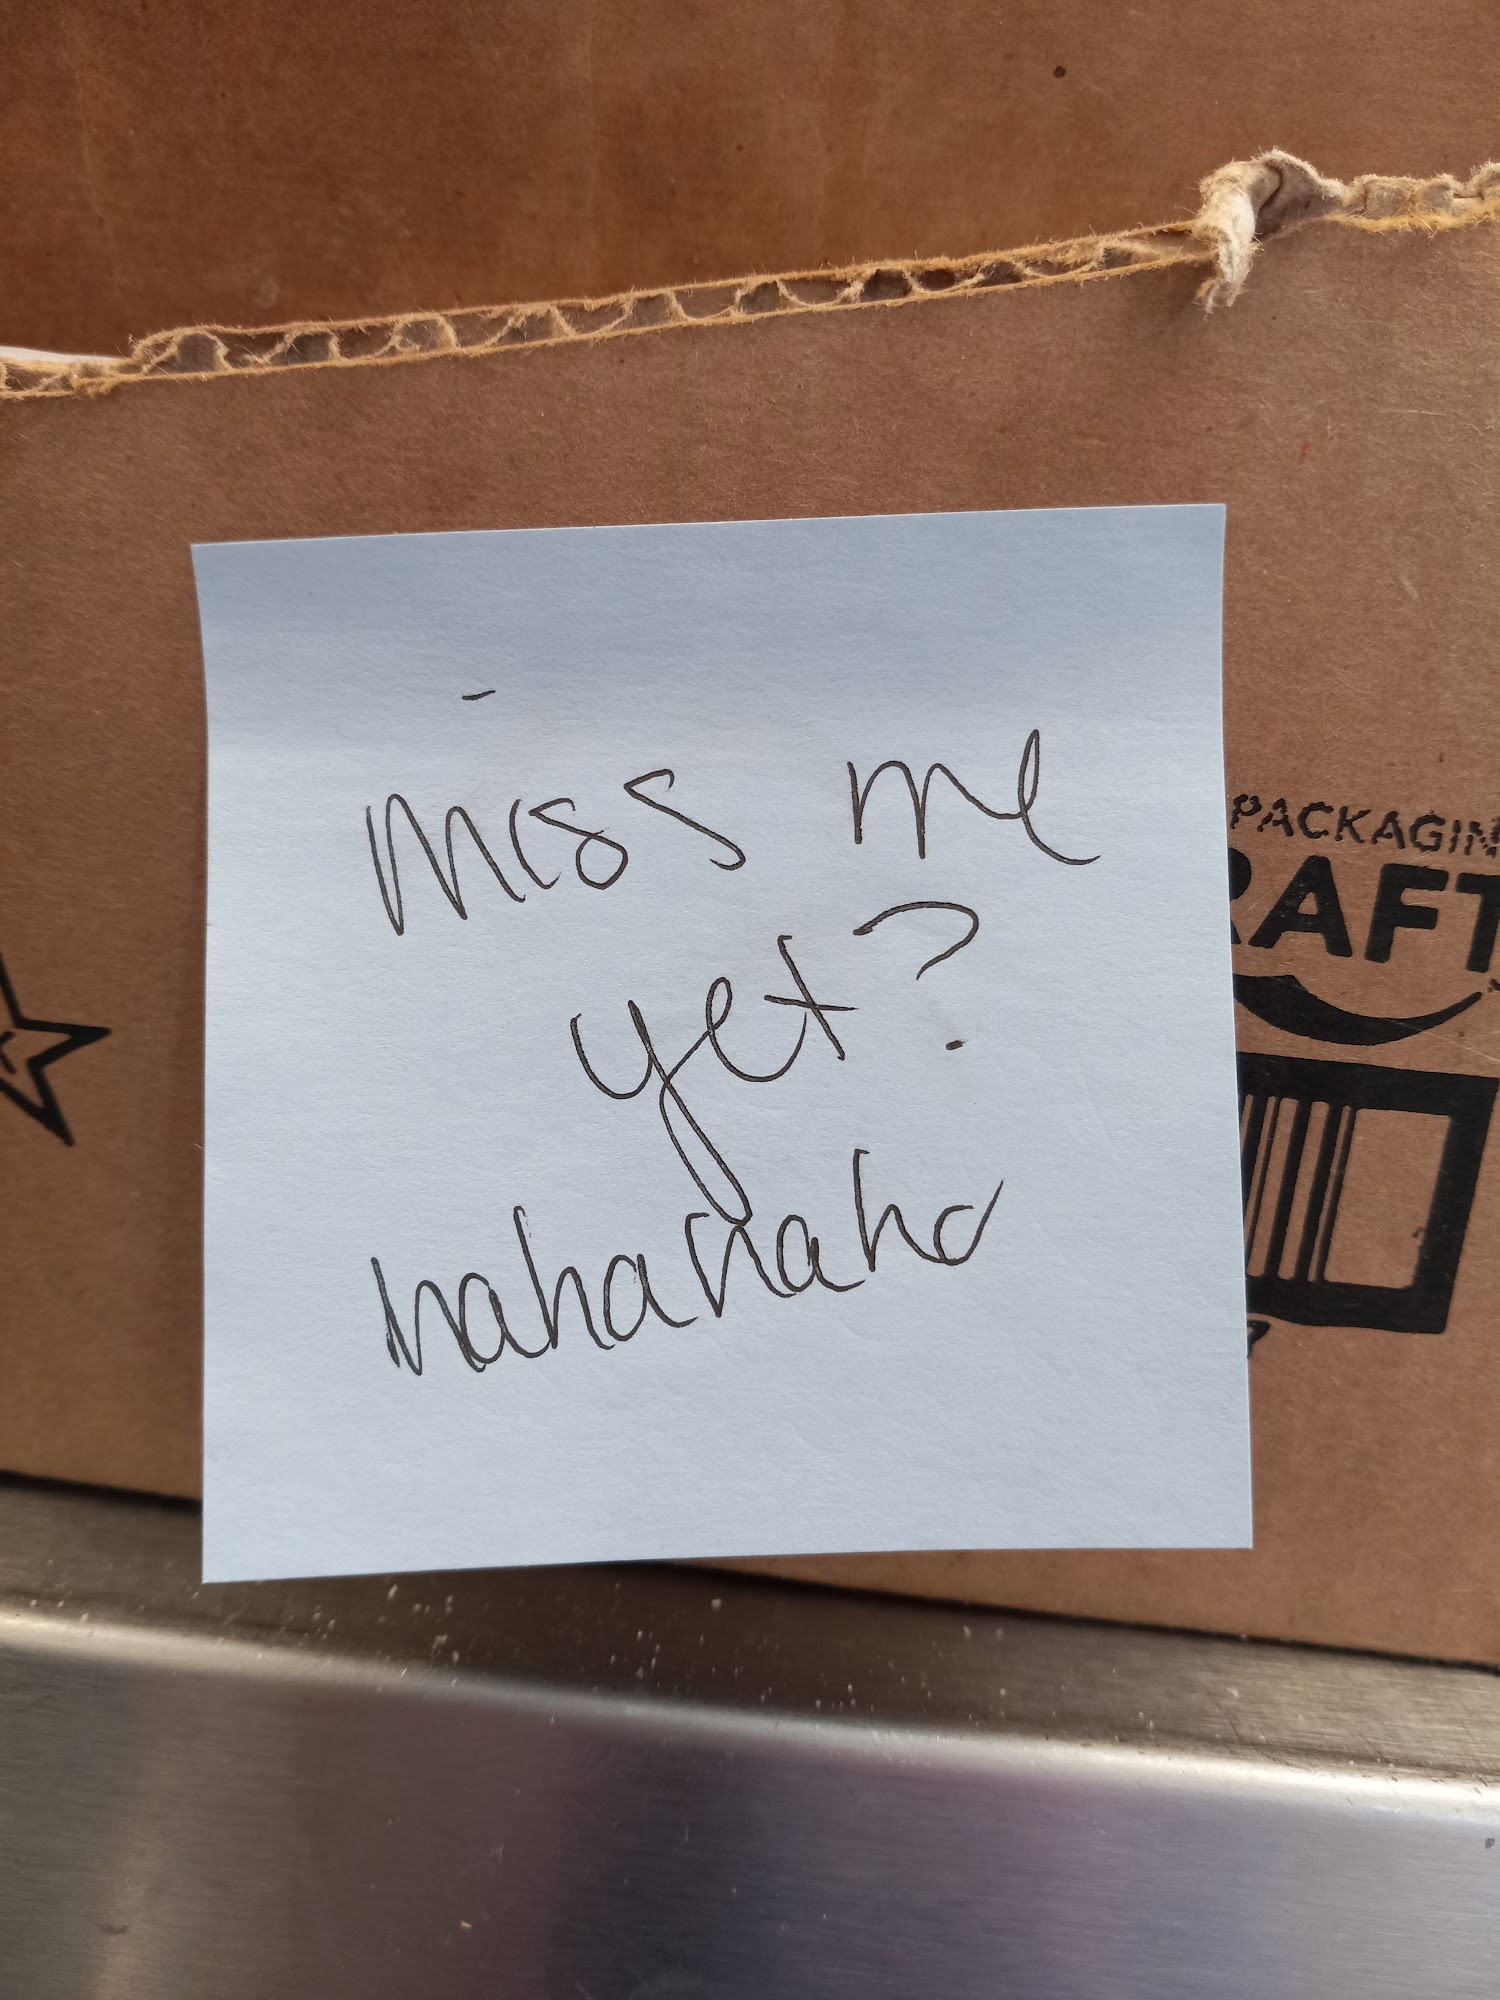 miss me
yet?
hahahahaha
PACKAGIN
RAFT